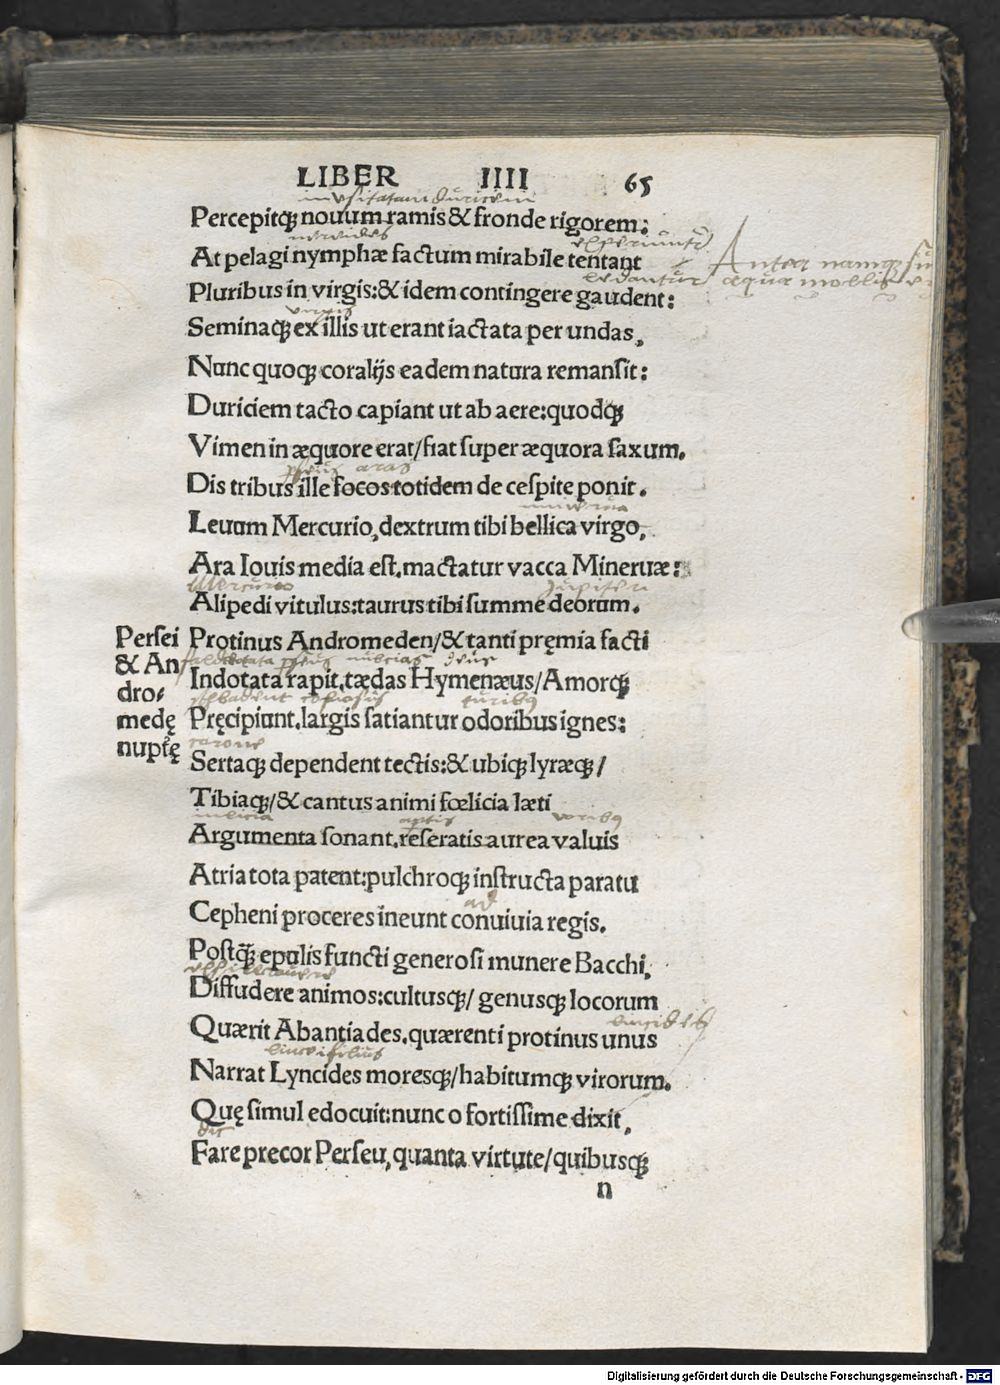 LIBER IIII 65
inusitatam duriciem
Percepitqꝫ nouum ramis & fronde rigorem:
nereides experiuntur
At pelagi nymphæ factum mirabile tentant
Antea namqꝫ
Pluribus in virgis:& idem contingere gaudent:
virgis
Seminaqꝫ ex illis ut erant iactata per undas,
Nunc quoqꝫ coralijs eadem natura remansit:
Duriciem tacto capiant ut ab aere:quodqꝫ
Vimen in æquore erat/fiat super æquora saxum.
aras
Dis tribus ille focos totidem de cespite ponit.
minerua
Leuum Mercurio,dextrum tibi bellica virgo,
Ara Iouis media est.mactatur vacca Mineruæ:
Mercurio Jupiter
Alipedi vitulus:taurus tibi summe deorum.
Persei
& An
dro⸗
medę
nuptę
Protinus Andromeden/& tanti pręmia facti
Indotata rapit.tædas Hymenæus/Amorqꝫ
copiosius
Pręcipiunt.largis satiantur odoribus ignes:
corone
Sertaqꝫ dependent tectis:& ubiqꝫ lyræqꝫ/
Tibiaqꝫ/& cantus animi fœlicia læti
Argumenta sonant.reseratis aurea valuis
Atria tota patent:pulchroqꝫ instructa paratu
ad
Cepheni proceres ineunt conuiuia regis.
Postq̃ꝫ epulis functi generosi munere Bacchi,
Diffudere animos:cultusqꝫ/ genusqꝫ locorum
Quærit Abantiades.quærenti protinus unus
Narrat Lyncides moresqꝫ/habitumqꝫ virorum.
Quę simul edocuit:nunc o fortissime dixit,
dic
Fare precor Perseu,quanta virtute/quibusqꝫ
n
Digitalisierung gefördert durch die Deutsche Forschungsgemeinschaft - DFG